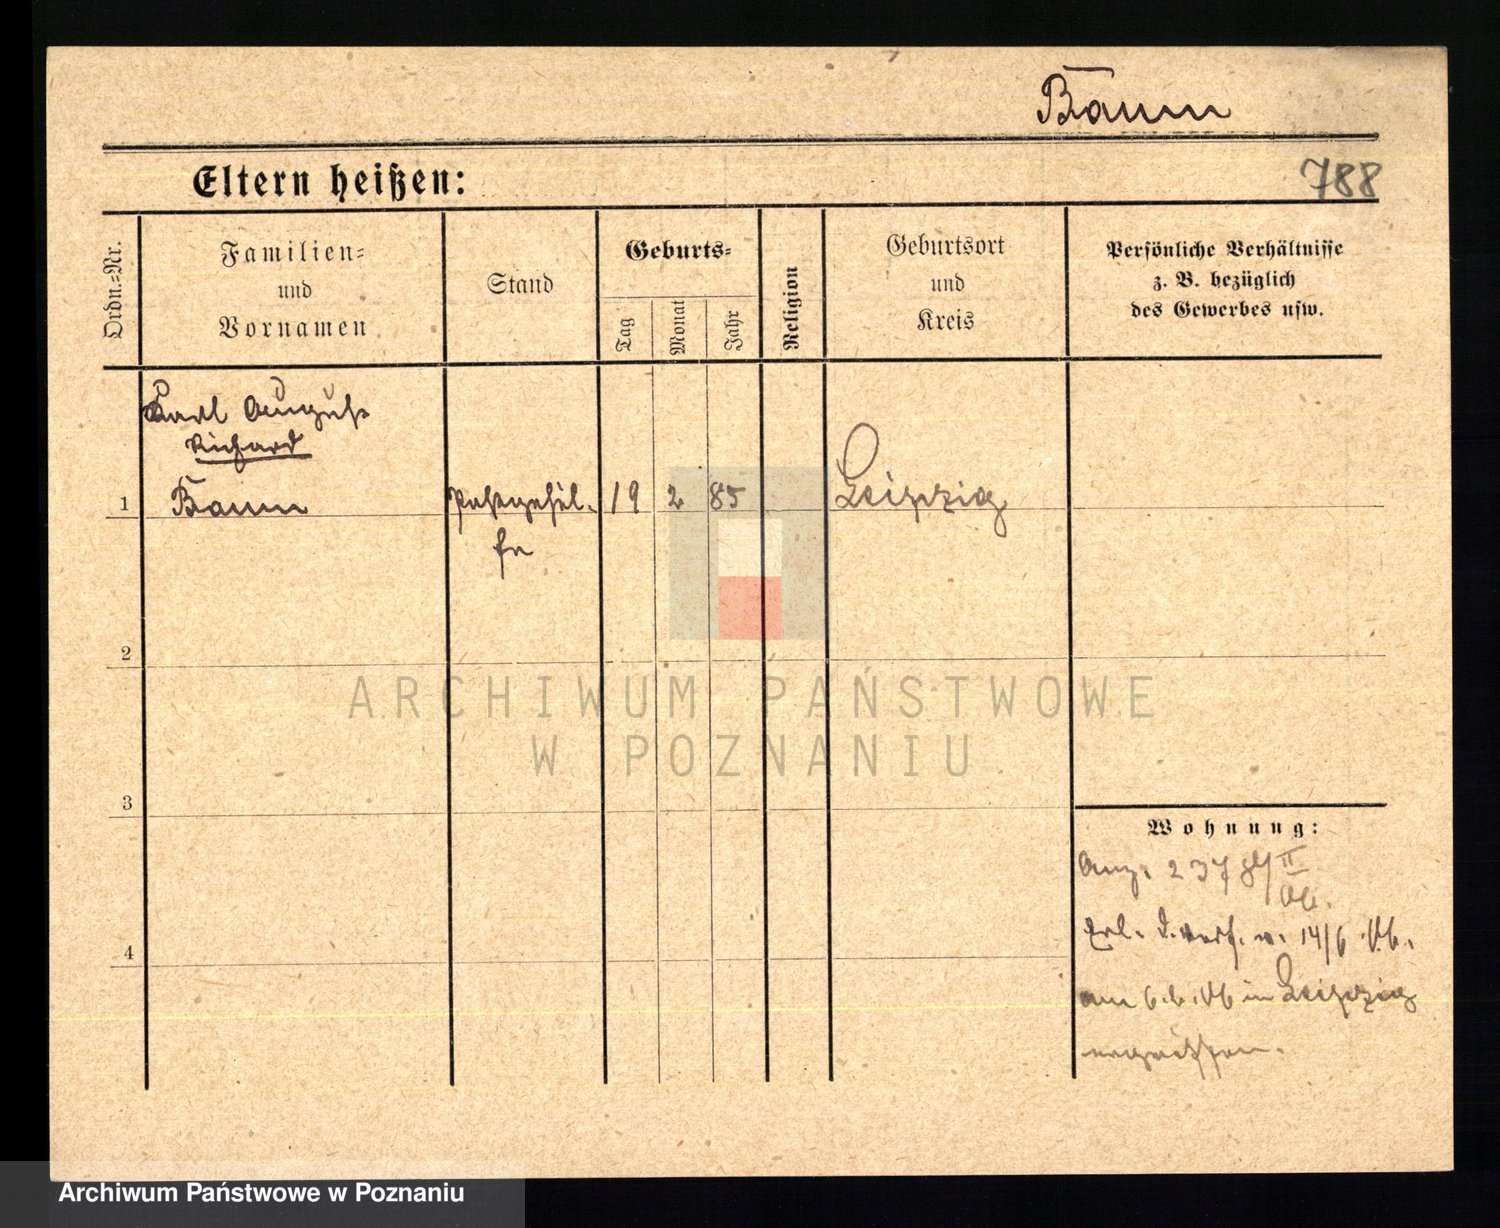 Baum
Eltern heißen:
788
Ordn.-Nr.
Familien-
und
Vornamen
Stand
Geburts-
Tag
Monat
Jahr
Religion
Geburtsort
und
Kreis
Persönliche Verhältnisse
z. B. bezüglich
des Gewerbes usw.
Karl August
Richard
1
Baum
Postgehil-
fe
19
2
85
Leipzig
2
ARCHIWUM PAŃSTWOWE
W POZNANIU
3
Wohnung:
Anz. 237
Erl. d. Verf. v. 14/6 06.
4
am 6.6.06 in Leipzig
ergriffen.
Archiwum Państwowe w Poznaniu